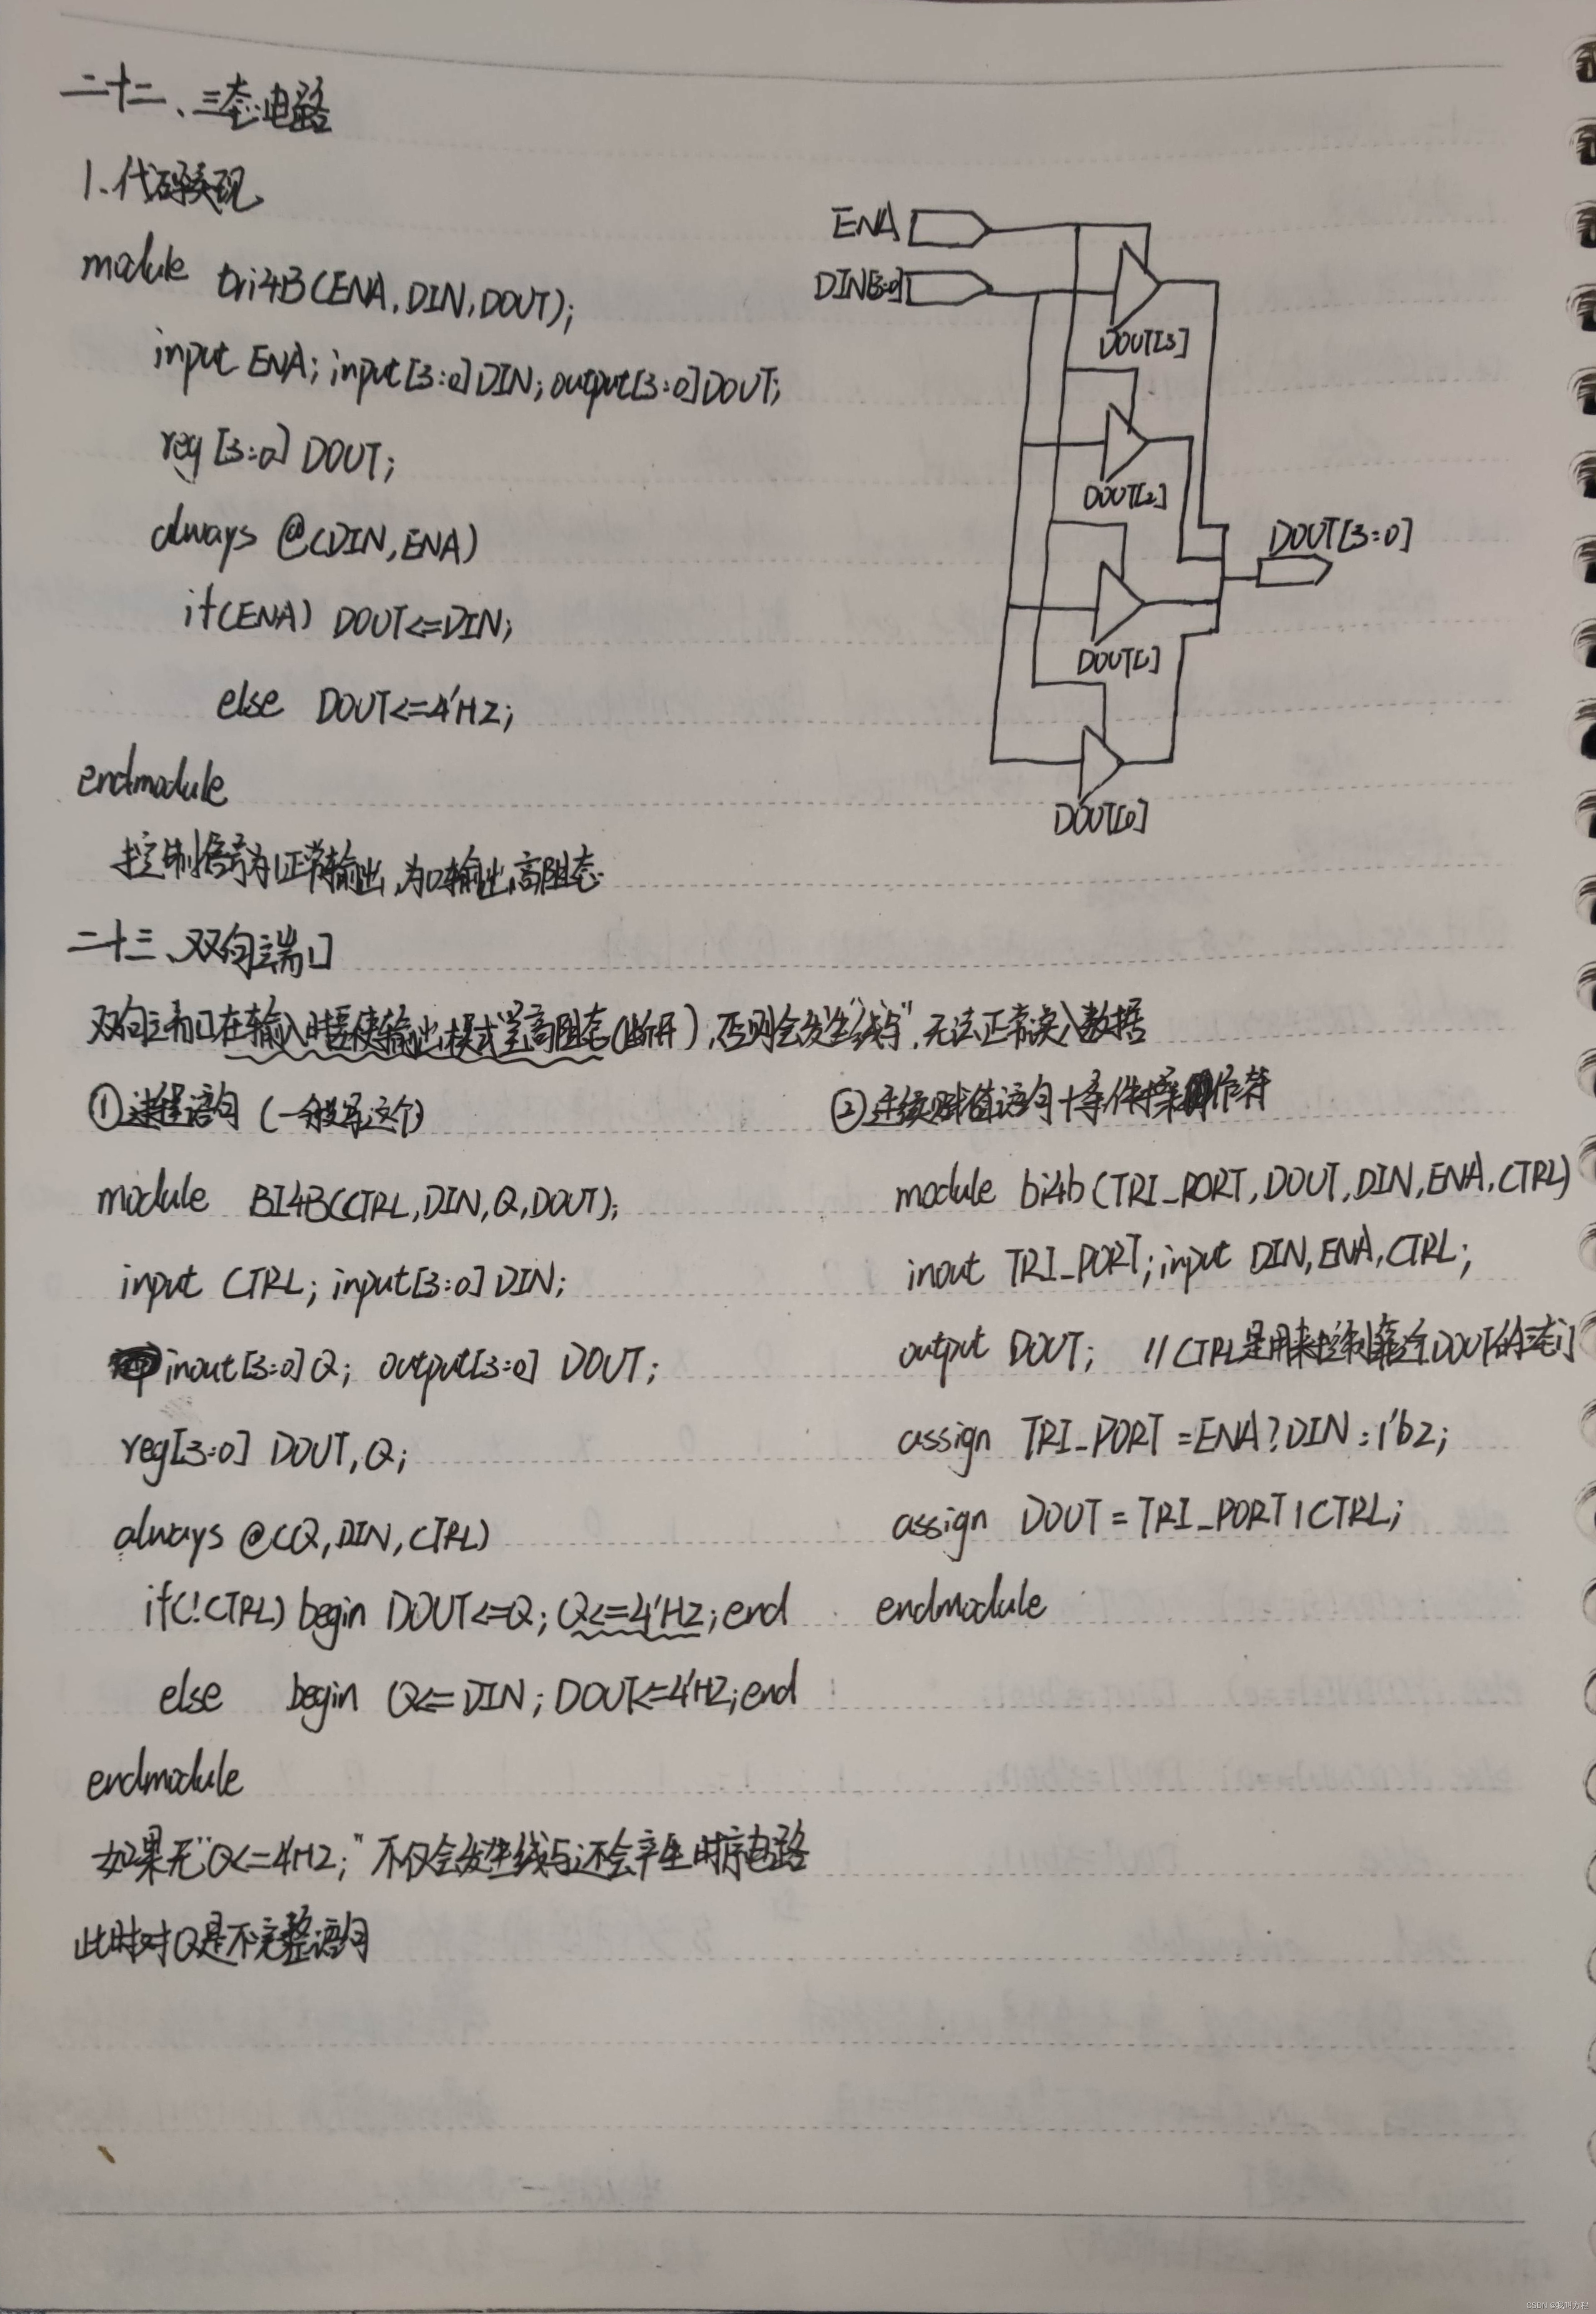 二十二、三态电路
1、代码实现
module tri4B(ENA,DIN,DOUT);
input ENA; input[3:0]DIN; output[3:0]DOUT;
reg [3:0] DOUT;
always @(DIN,ENA)
if(ENA) DOUT<=DIN;
else DOUT<=4'HZ;
endmodule
控制信号为1正常输出,为0输出高阻态
ENA
DIN[3:0]
DOUT[3]
DOUT[2]
DOUT[3:0]
DOUT[1]
DOUT[0]
二十三、双向端口
双向端口在输入时要使输出模式呈高阻态(断开),否则会发生"线与",无法正常读入数据
①进程语句(一般写这个)
module BI4B(CTRL,DIN,Q,DOUT);
input CTRL; input[3:0]DIN;
inout[3:0]Q; output[3:0] DOUT;
reg[3:0] DOUT,Q;
always @(Q,DIN,CTRL)
if(!CTRL) begin DOUT<=Q; Q<=4'HZ;end
else begin Q<=DIN; DOUT<=4'HZ;end
endmodule
如果无"Q<=4'HZ;"不仅会发生线与还会产生时序电路
此时对Q是不完整语句
②连续赋值语句+条件操作符
module bi4b(TRI_PORT,DOUT,DIN,ENA,CTRL)
inout TRI_PORT; input DIN,ENA,CTRL;
output DOUT; //CTRL是用来控制DOUT的三态门
assign TRI_PORT=ENA?DIN:1'bz;
assign DOUT=TRI_PORT|CTRL;
endmodule